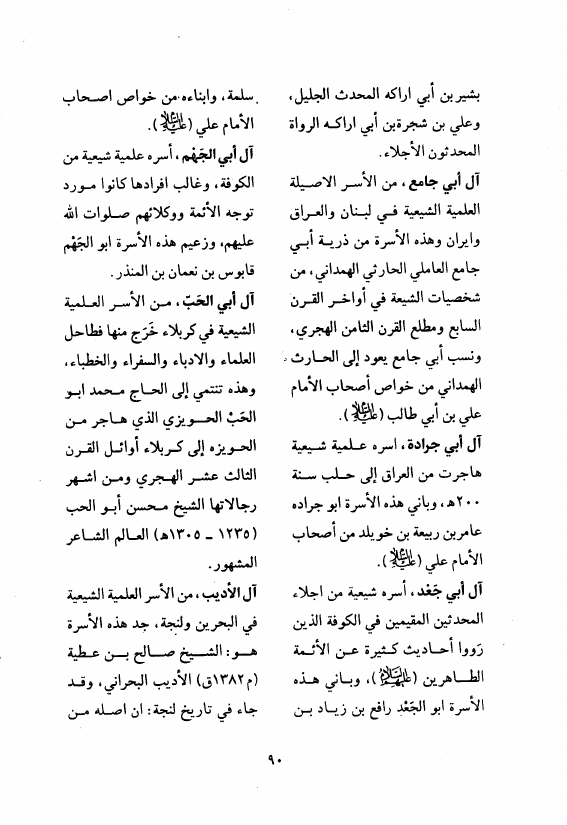 بشير بن أبي اراكه المحدث الجليل،
وعلي بن شجرة بن أبي اراكـه الرواة
المحدثون الأجلاء.
آل أبي جامع، من الأسـر الاصـيلة
العلمية الشيعية فـي لبـنان والعـراق
وايران وهذه الأسرة من ذريـة أبـي
جامع العاملي الحارثي الهمداني، من
شخصيات الشيعة في أواخـر القـرن
السابع ومطلع القرن الثامن الهجري،
ونسب أبي جامع يعود إلى الحـارث
الهمداني من خواص أصحاب الأمام
علي بن أبي طالب (عليه السلام).
آل أبي جرادة، اسره عـلمية شـيعية
هاجرت من العراق إلى حـلب سـنة
٢٠٠هـ، وباني هذه الأسرة ابو جراده
عامربن ربيعة بن خويلد من أصحاب
الأمام علي (عليه السلام).
آل أبي جَعْد، أسره شيعية من اجلاء
المحدثين المقيمين في الكوفة الذين
رَووا أحـاديث كـثيرة عـن الأئـمة
الطـاهرين (عليهم السلام)، وبـاني هـذه
الأسرة ابو الجَعْد رافع بن زيـاد بـن
سلمة، وابناءه من خواص اصـحاب
الأمام علي (عليه السلام).
آل أبي الجَهْم، أسره علمية شيعية من
الكوفة، وغالب افرادها كانوا مـورد
توجه الأئمة ووكلائهم صـلوات الله
عليهم، وزعيم هذه الأسرة ابو الجَهْم
قابوس بن نعمان بن المنذر.
آل أبي الحَبّ، مـن الأسـر العـلمية
الشيعية في كربلاء خَرَج منها فطاحل
العلماء والادباء والسفراء والخطباء،
وهذه تنتمي إلى الحـاج مـحمد ابـو
الحَبّ الحـويزي الذي هـاجر مـن
الحـويزه إلى كـربلاء أوائـل القـرن
الثالث عشـر الهـجري ومـن اشـهر
رجالاتها الشيخ مـحسن أبـو الحب
(١٢٣٥ ـ ١٣٠٥هـ) العـالم الشـاعر
المشهور.
آل الأديب، من الأسر العلمية الشيعية
في البحرين ولنجة، جد هذه الأسرة
هـو: الشـيخ صـالح بـن عـطية
(م١٣٨٢ق) الأديب البحراني، وقـد
جاء في تاريخ لنجة: ان اصـله مـن
٩٠